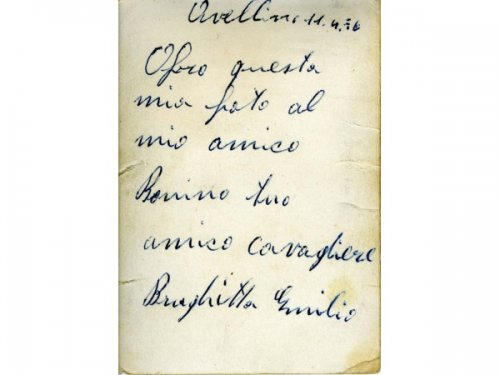 Avellino 11.4.56
Ofro questa
mia foto al
mio amico
Bonino tuo
amico Cavagliere
Braghitta Emilio